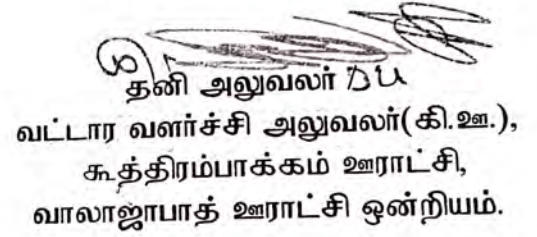 தனி அலுவலர்
வட்டார வளர்ச்சி அலுவலர்(கி.ஊ.),
கூத்திரம்பாக்கம் ஊராட்சி,
வாலாஜாபாத் ஊராட்சி ஒன்றியம்.